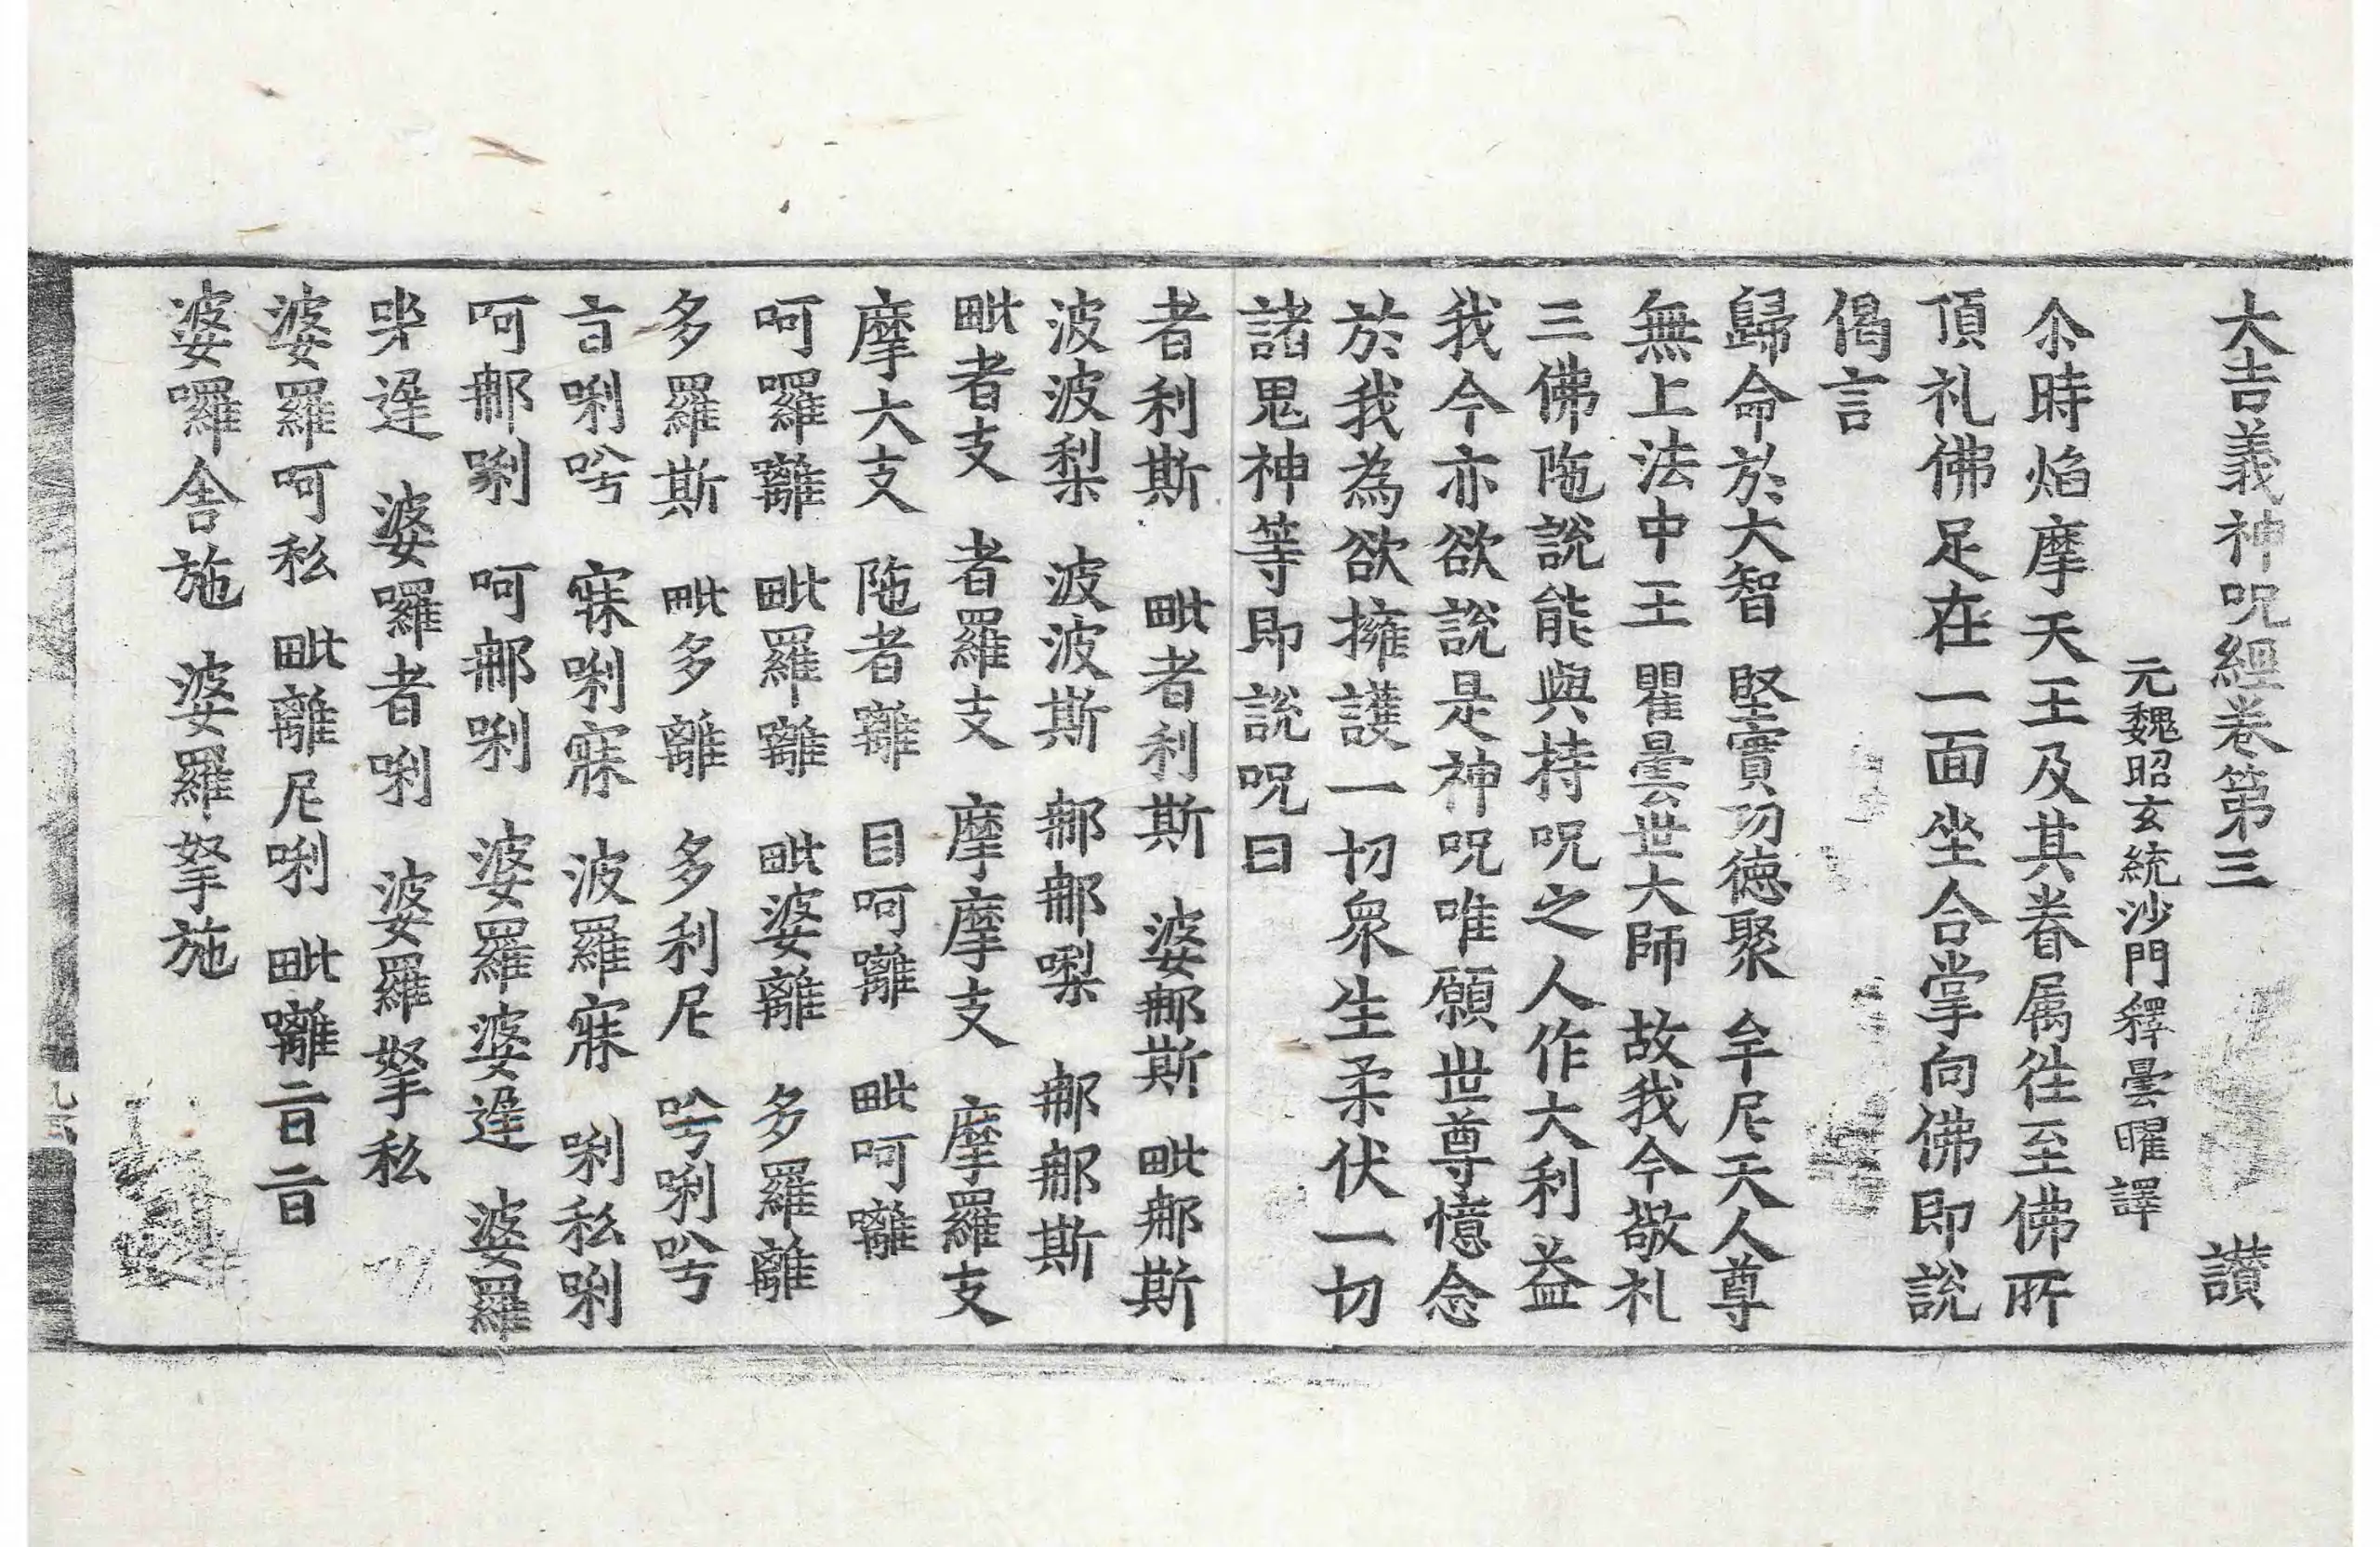 大吉義神呪經卷第三 讃
元魏昭玄統沙門釋曇曜譯
尒時焰摩天王及其眷属徃至佛所
頂礼佛足在一面坐合掌向佛即說
偈言
歸命於大智 堅實功德聚 牟尼天人尊
無上法中王 瞿曇世大師 故我今敬礼
三佛陁說能與持呪之人作大利益
我今亦欲說是神呪唯願世尊憶念
於我為欲擁護一切衆生柔伏一切
諸鬼神等即說呪曰
者利斯 毗者利斯 婆那斯 毗那斯
波波梨 波波斯 那那㗚 那那斯
毗者支 者羅支 摩摩支 摩羅支
摩大支 陁者離 目呵囄 毗呵囄
呵囉離 毗羅離 毗婆離 多羅離
多羅斯 毗多離 多利尼 唦唎唦
唎 寐唎寐 波羅寐 唎私唎
呵那唎 呵那唎 婆羅婆達 婆羅
達 婆囉者唎 婆羅拏私
婆羅呵私 毗離尼唎 毗囄
婆囉舍施 婆羅拏施